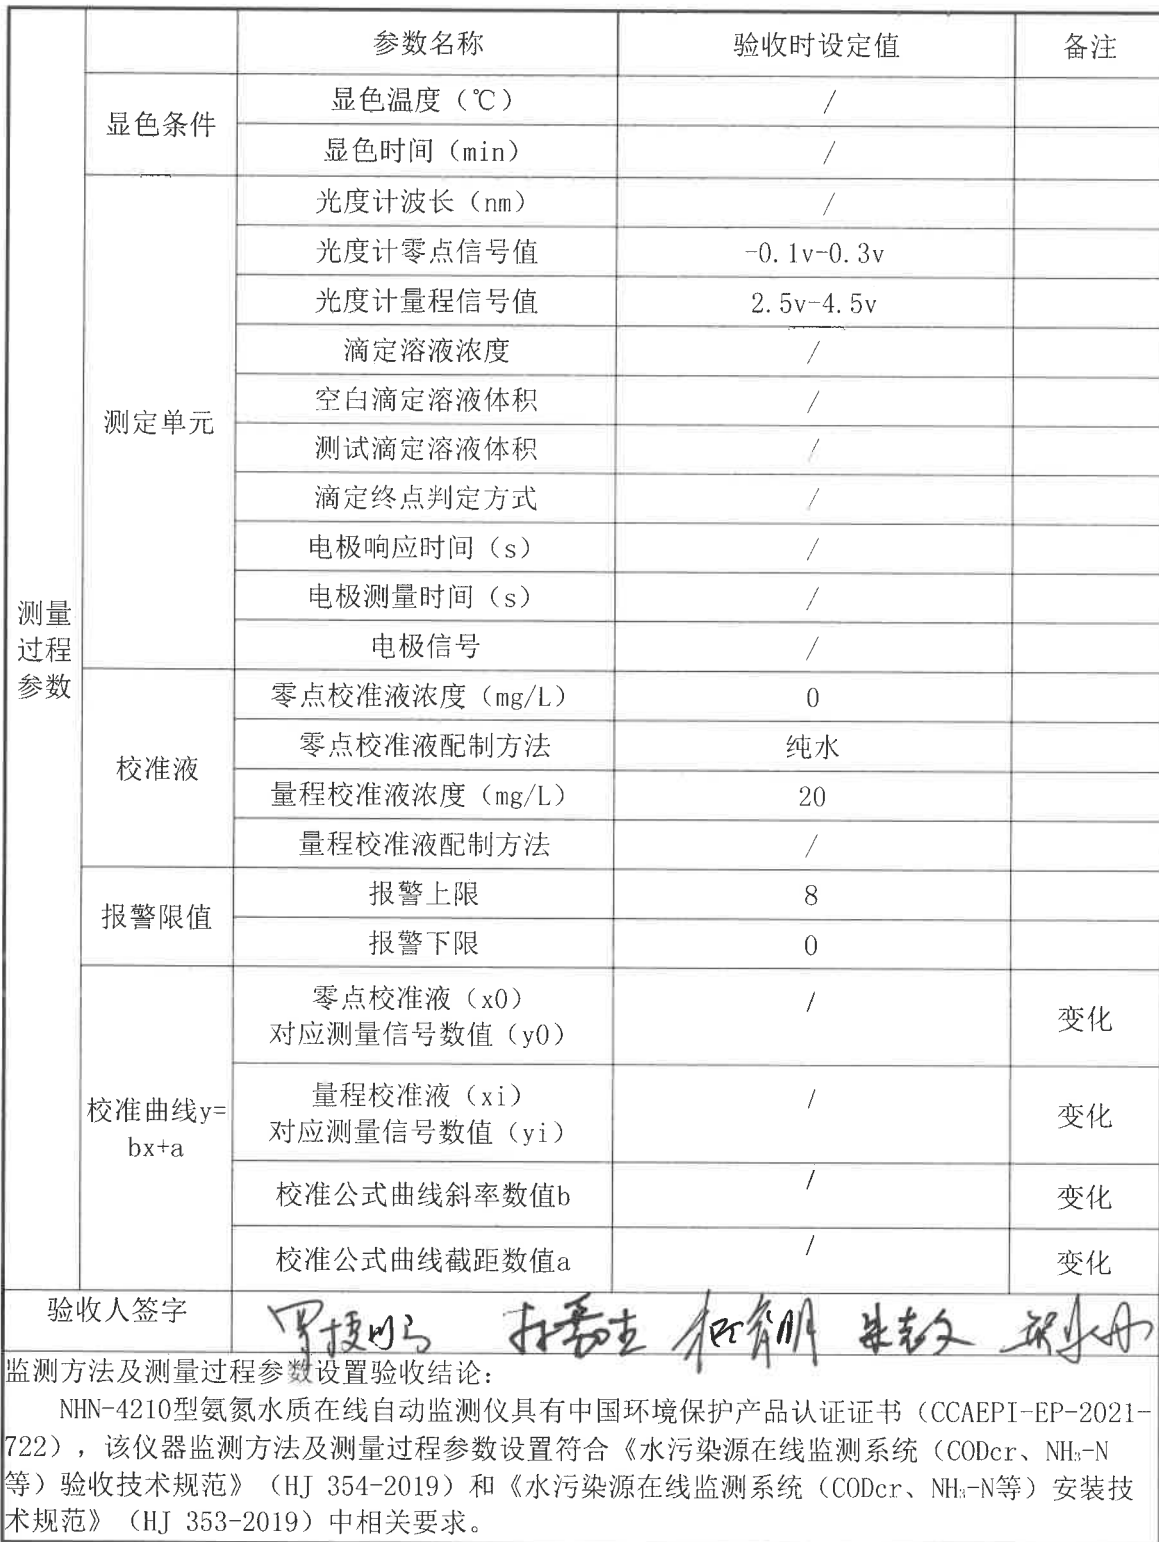 参数名称 验收时设定值 备注
显色条件
显色温度（℃） /
显色时间（min） /
测定单元
光度计波长（nm） /
光度计零点信号值 -0.1v-0.3v
光度计量程信号值 2.5v-4.5v
滴定溶液浓度 /
空白滴定溶液体积 /
测试滴定溶液体积 /
滴定终点判定方式 /
电极响应时间（s） /
电极测量时间（s） /
电极信号 /
测量
过程
参数
校准液
零点校准液浓度（mg/L） 0
零点校准液配制方法 纯水
量程校准液浓度（mg/L） 20
量程校准液配制方法 /
报警限值
报警上限 8
报警下限 0
校准曲线y=
bx+a
零点校准液（x0） /
对应测量信号数值（y0） 变化
量程校准液（xi） /
对应测量信号数值（yi） 变化
校准公式曲线斜率数值b / 变化
校准公式曲线截距数值a / 变化
验收人签字
监测方法及测量过程参数设置验收结论：
NHN-4210型氨氮水质在线自动监测仪具有中国环境保护产品认证证书（CCAEPI-EP-2021-
722），该仪器监测方法及测量过程参数设置符合《水污染源在线监测系统（CODcr、NH₃-N
等）验收技术规范》（HJ 354-2019）和《水污染源在线监测系统（CODcr、NH₃-N等）安装技
术规范》（HJ 353-2019）中相关要求。